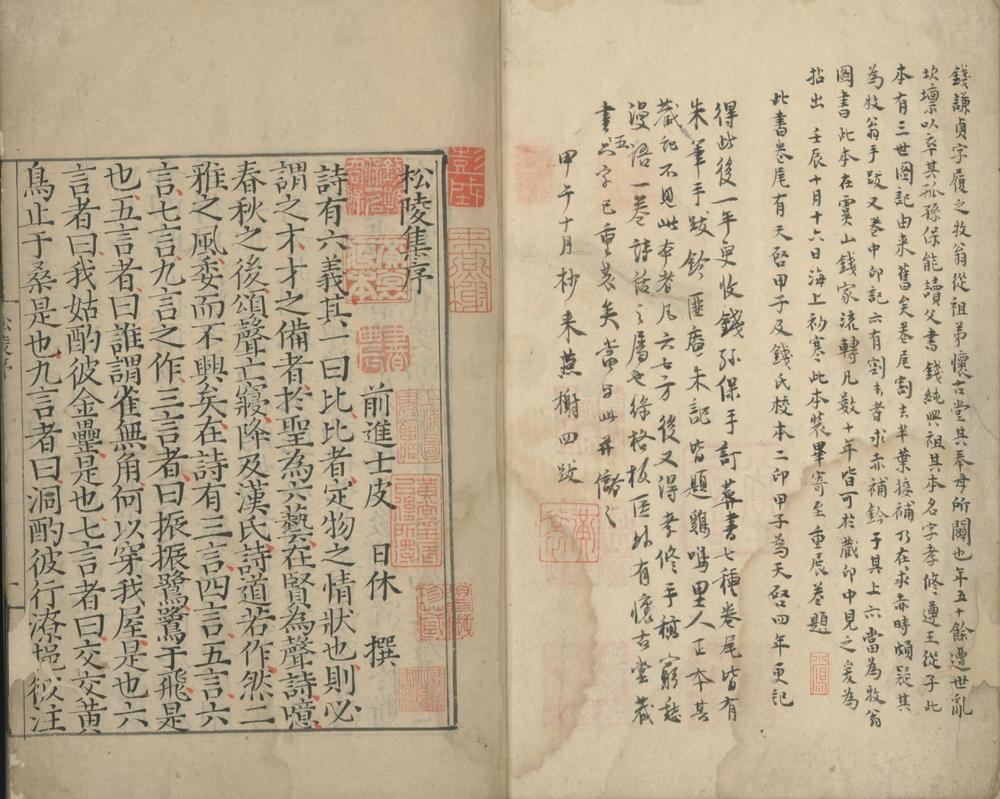 錢謙貞字履之牧翁從祖弟懷古堂其奉母所闢也年五十餘遭世亂
坎壈以卒其孤孫保能讀父書錢純興祖其本名字孝修遵王從子此
本有三世圖記由来舊矣卷尾割去半葉接補乃在求赤時頗疑其
為牧翁手跋又卷中印記亦有割去者求赤補鈐于其上亦當為牧翁
圖書此本在虞山錢家流轉凡數十年皆可於藏印中見之爰為
拈出 壬辰十月十六日海上初寒此本裝畢寄至重展卷題
此書卷尾有天啓甲子及錢氏校本二印甲子為天啓四年更記
得此後一年更收錢孫保手訂葬書七種卷尾皆有
朱筆手跋鈐匪庵朱記皆題鷄鳴里人正本其
藏記不見此本者凡六七方後又得孝修手稿窮愁
漫語一卷詩話之屬也綠格板匡外有懷古堂藏
書五字已重裝矣當与此并儲之
甲午十月杪来燕榭四跋
松陵集序
前進士皮 日休 撰
詩有六義其一曰比比者定物之情狀也則必
謂之才才之備者於聖為六藝在賢為聲詩噫
春秋之後頌聲亡寢降及漢氏詩道若作然二
雅之風委而不興矣在詩有三言四言五言六
言七言九言之作三言者曰振振鷺鷺于飛是
也五言者曰誰謂雀無角何以穿我屋是也六
言者曰我姑酌彼金罍是也七言者曰交交黃
鳥止于桑是也九言者曰泂酌彼行潦挹彼注